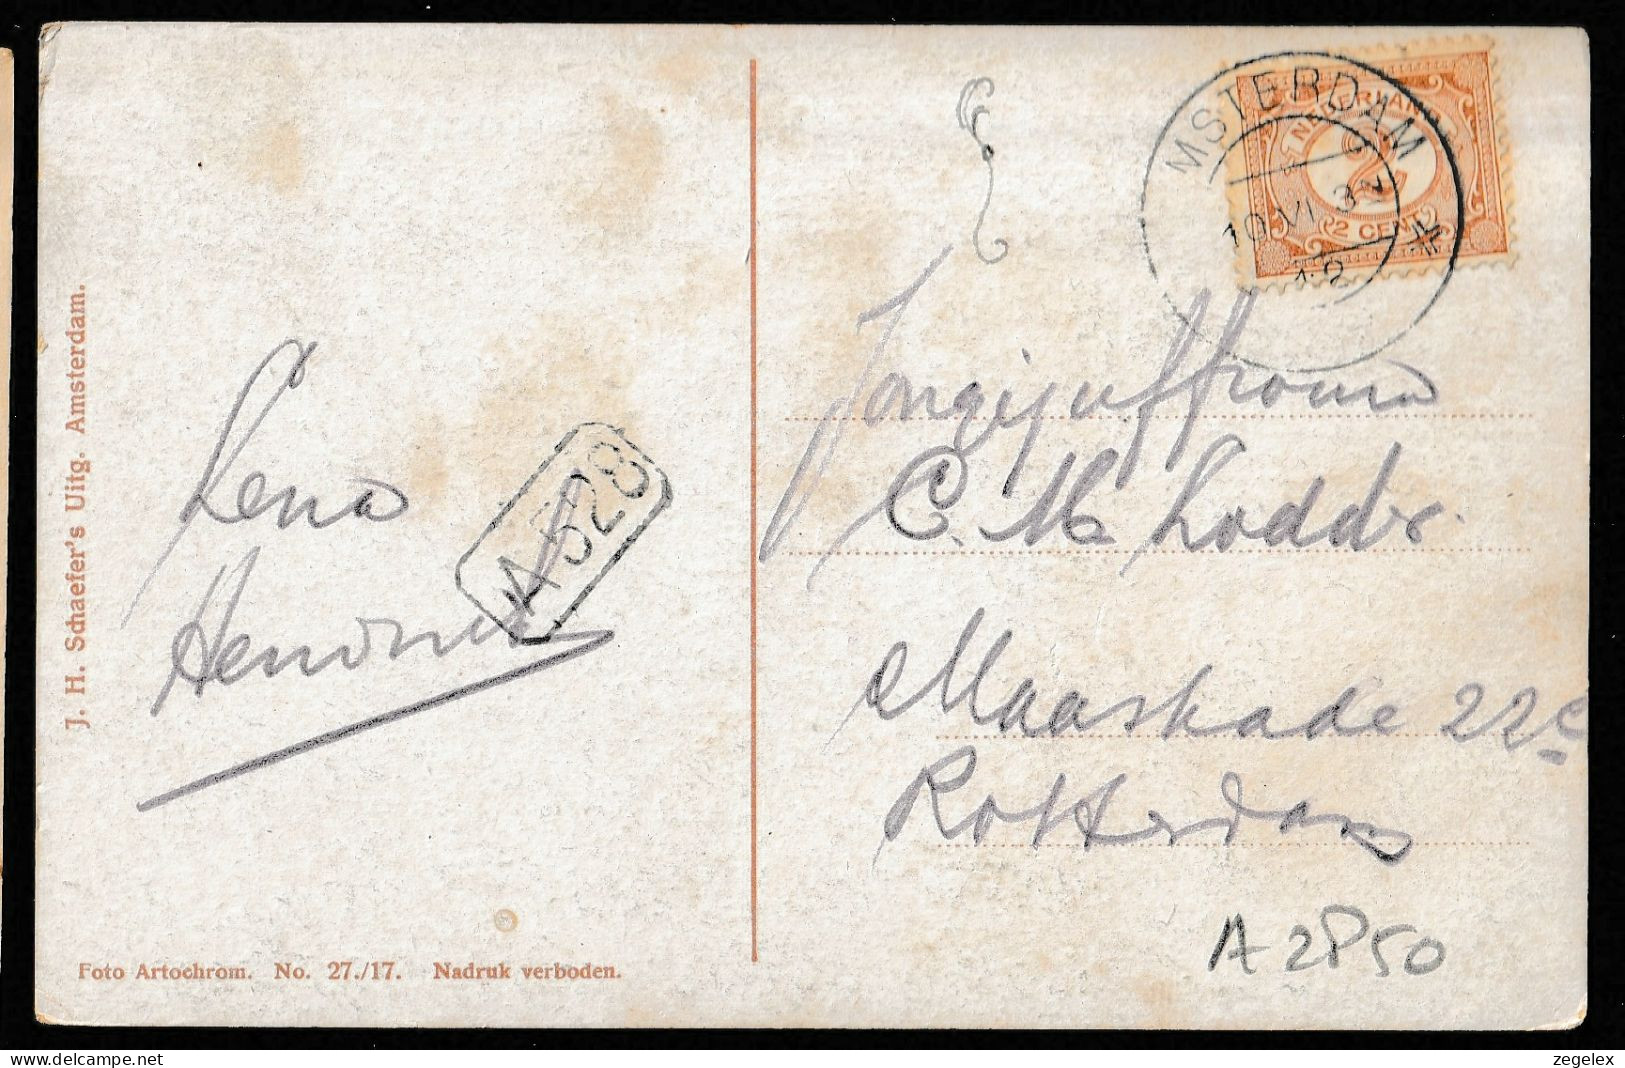 J. H. Schaefer's Uitg. Amsterdam.
Lena
A528
Foto Artochrom. No. 27./17. Nadruk verboden.
MSTERDAM
10 VI 32
NEDERLAND
2
2 CENT
Jongejuffrouw
C. M. Lodder.
Maaskade 22c
Rotterdam
A2850
zegelex